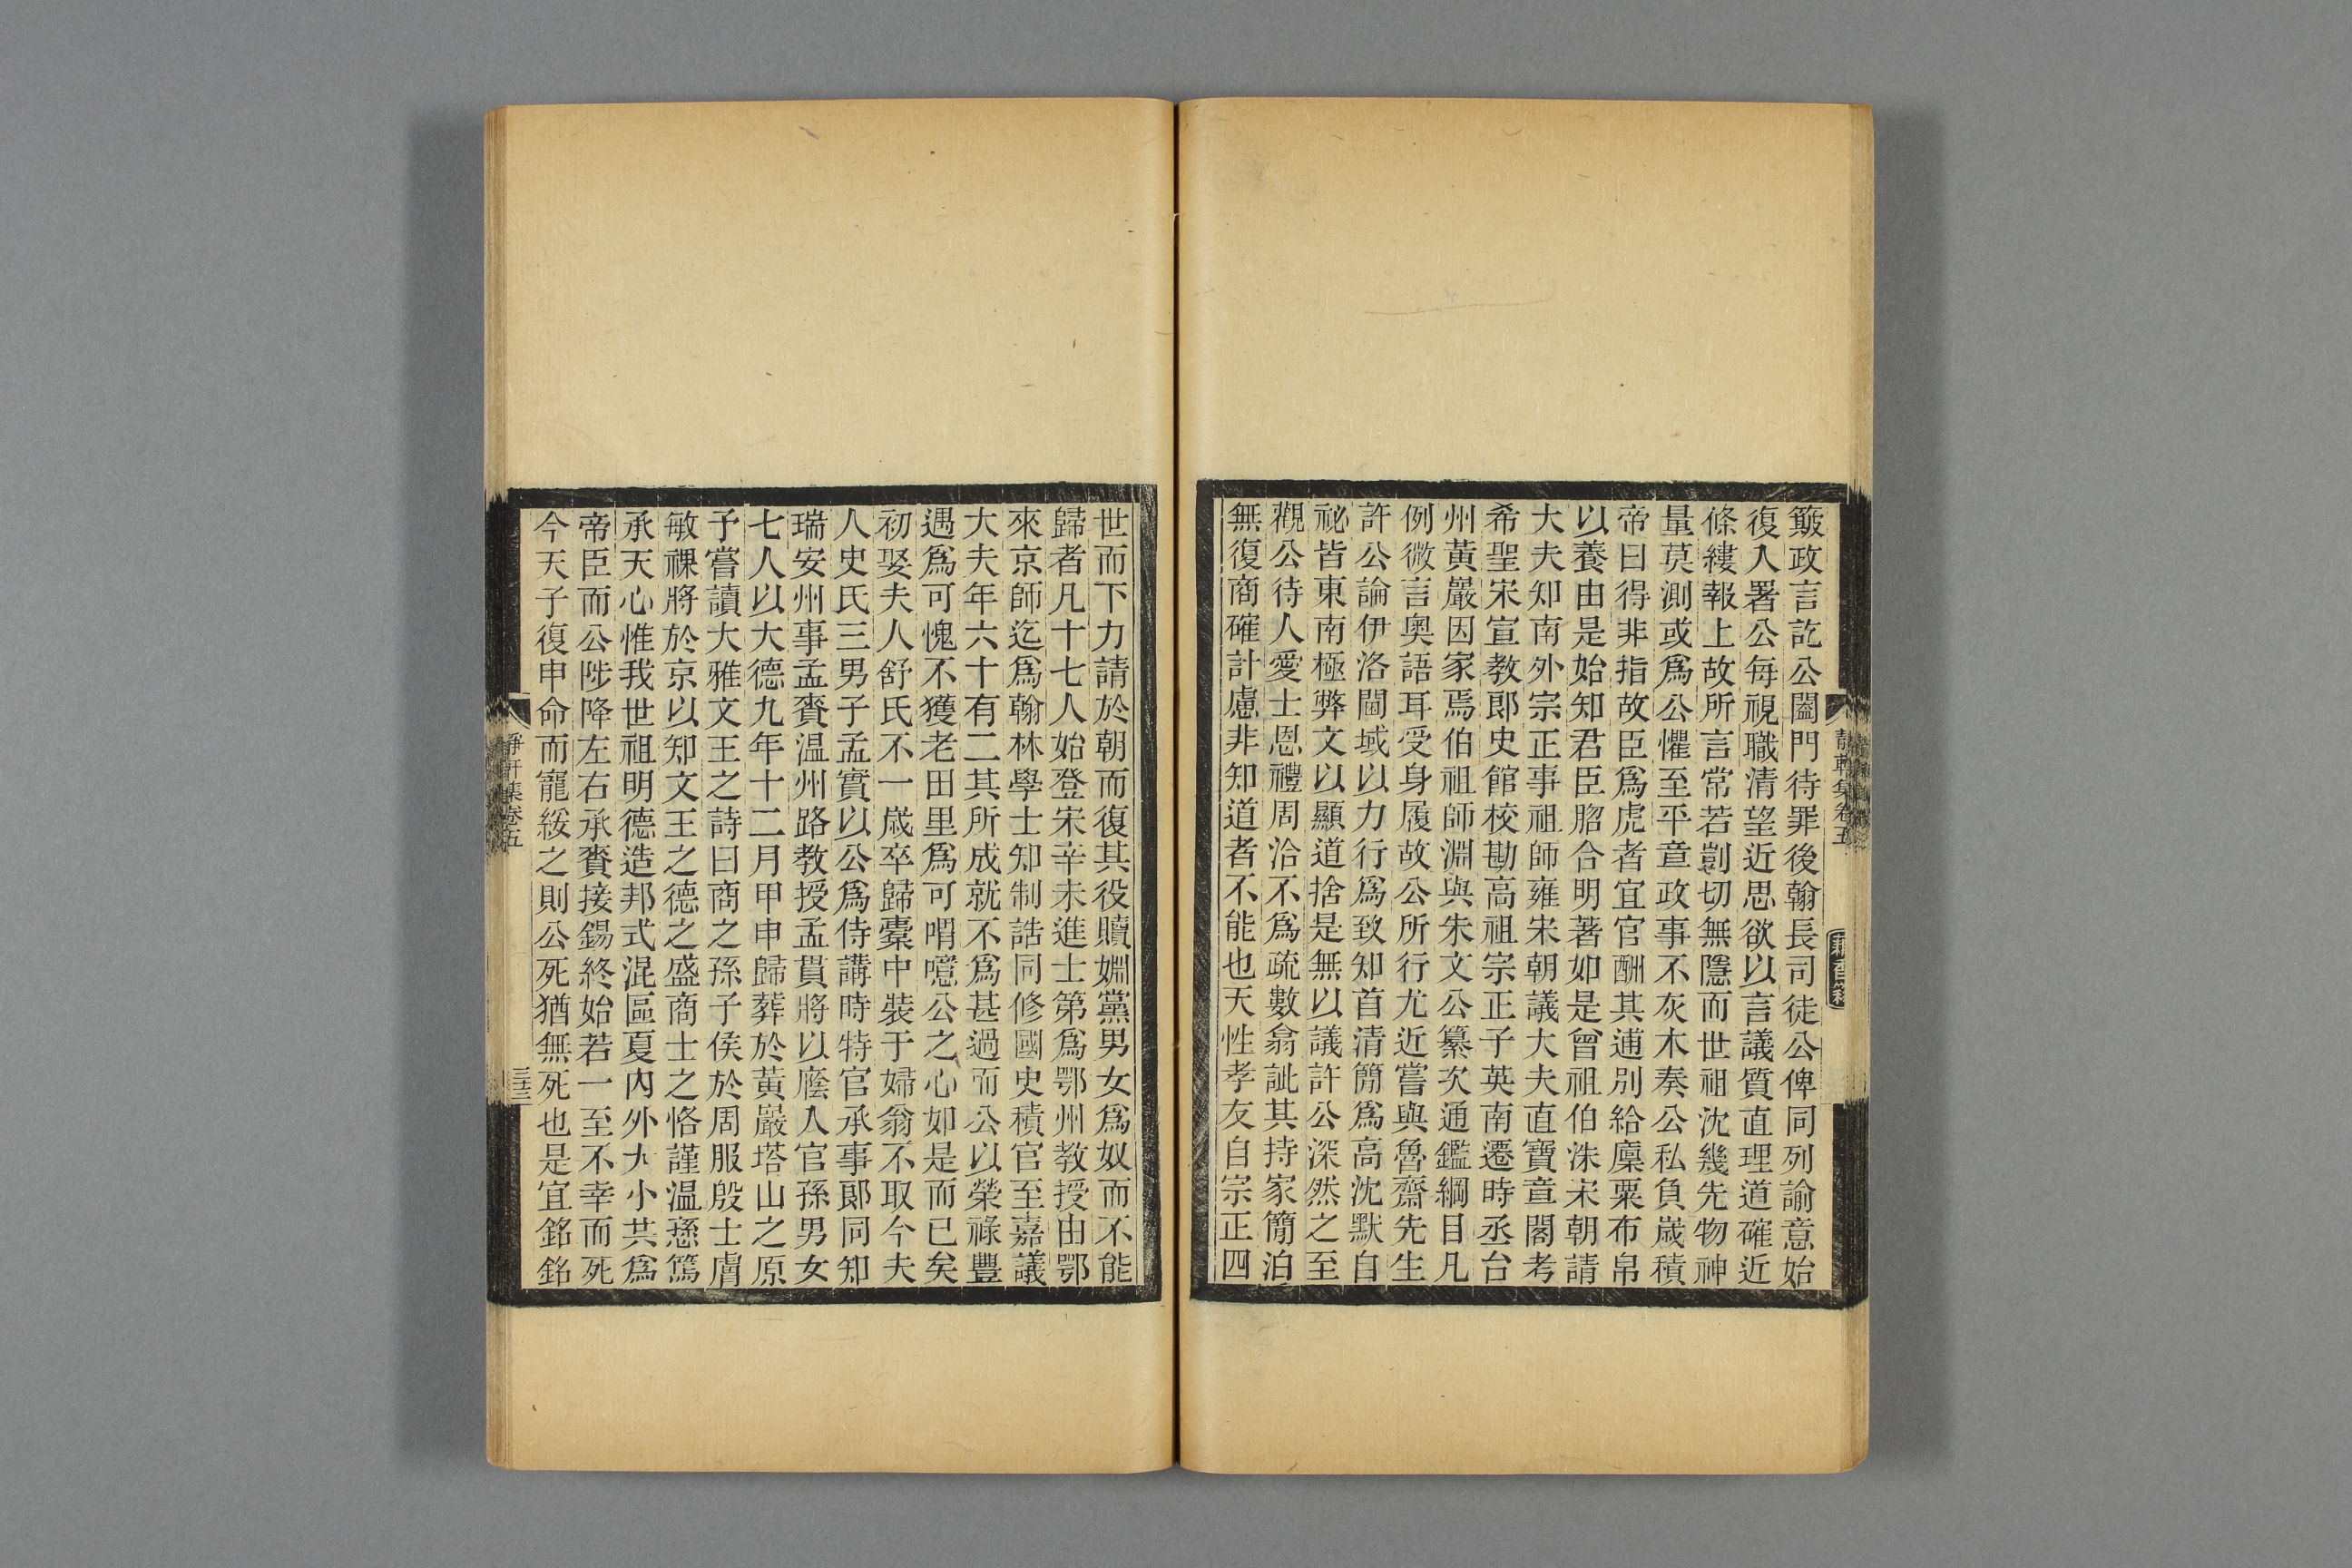 簸政言訖公闔門待罪後翰長司徒公俾同列諭意始
復入署公每視職清望近思欲以言議質直理道確近
條縷報上故所言常若剴切無隱而世祖沈幾先物神
量莫測或爲公懼至平章政事不灰木奏公私負歲積
帝曰得非指故臣爲虎者宜官酬其逋別給廩粟布帛
以養由是始知君臣脗合明著如是曾祖伯洙宋朝請
大夫知南外宗正事祖師雍宋朝議大夫直寶章閣考
希聖宋宣教郎史館校勘高祖宗正子英南遷時丞台
州黃巖因家焉伯祖師淵與朱文公纂次通鑑綱目凡
例微言奧語耳受身履故公所行尤近嘗與魯齋先生
許公論伊洛閫域以力行爲致知首清簡爲高沈默自
祕皆東南極弊文以顯道捨是無以議許公深然之至
觀公待人愛士恩禮周洽不爲疏數翕訿其持家簡泊
無復商確計慮非知道者不能也天性孝友自宗正四
靜軒集卷五
世而下力請於朝而復其役贖婣黨男女爲奴而不能
歸者凡十七人始登宋辛未進士第爲鄂州教授由鄂
來京師迄爲翰林學士知制誥同修國史積官至嘉議
大夫年六十有二其所成就不爲甚過而公以榮祿豐
遇爲可愧不獲老田里爲可喟噫公之心如是而已矣
初娶夫人舒氏不一歲卒歸橐中裝于婦翁不取今夫
人史氏三男子孟實以公爲侍講時特官承事郎同知
瑞安州事孟賚温州路教授孟貫將以廕入官孫男女
七人以大德九年十二月甲申歸葬於黃巖塔山之原
予嘗讀大雅文王之詩曰商之孫子侯於周服殷士膚
敏祼將於京以知文王之德之盛商士之恪謹温懿篤
承天心惟我世祖明德造邦式混區夏內外大小共爲
帝臣而公陟降左右承賚接錫終始若一至不幸而死
今天子復申命而寵綏之則公死猶無死也是宜銘銘
靜軒集卷五